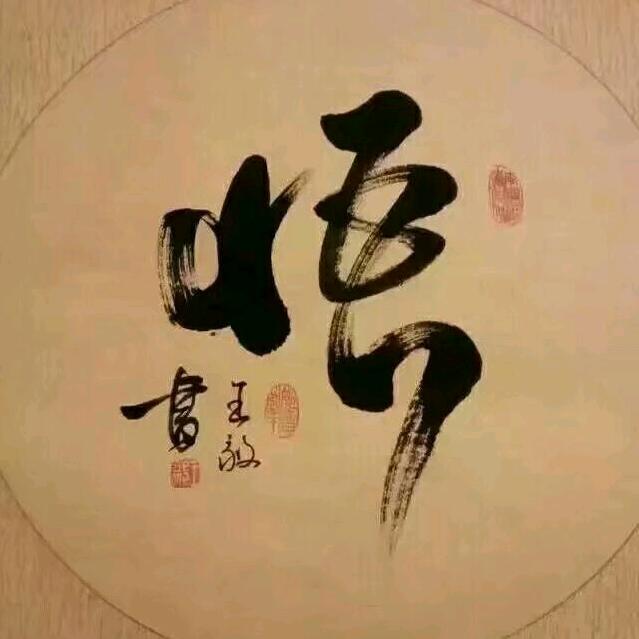 悟
王毅
書